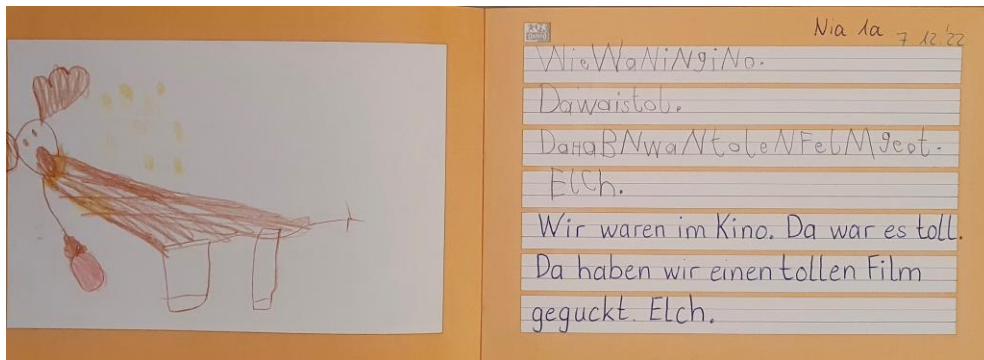 Nia 1a 7.12.'22
WieWaNiNgiNo.
Dawaistol.
DaHaBNwaNtoleNFelMgeot.
ElCh.
Wir waren im Kino. Da war es toll.
Da haben wir einen tollen Film
geguckt. Elch.